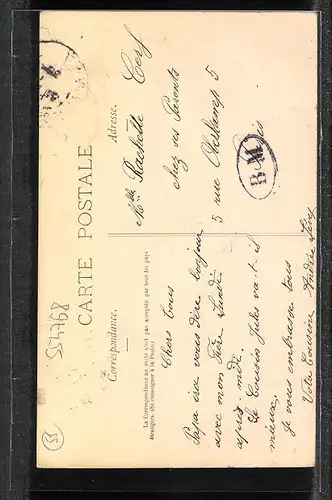 CARTE POSTALE
Correspondance.
Adresse.
La Correspondance au recto n'est pas acceptée par tous les pays
étrangers. (Se renseigner à la Poste)
Chers tous
Papa ira vous dire bonjour
avec mon Frère Lundi
après midi.
Le Cousin Jules va-t-il
mieux.
Je vous embrasse tous
Votre Cousine Andrée Lévy
Mlle Rachelle Cerf
chez ses Parents
5 rue Oberkampf 5
BM
554768
55